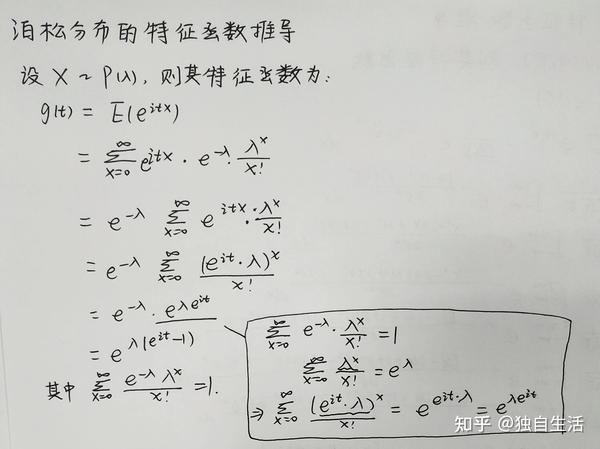 泊松分布的特征函数推导
设 X ~ P(λ), 则其特征函数为:
g(t) = E(e^{itx})
= ∑_{x=0}^{∞} e^{itx} · e^{-λ} · \frac{λ^x}{x!}
= e^{-λ} ∑_{x=0}^{∞} e^{itx} · \frac{λ^x}{x!}
= e^{-λ} ∑_{x=0}^{∞} \frac{(e^{it}·λ)^x}{x!}
= e^{-λ} · e^{λe^{it}}
= e^{λ(e^{it}-1)}
其中 ∑_{x=0}^{∞} \frac{e^{-λ} λ^x}{x!} = 1.
∑_{x=0}^{∞} e^{-λ} · \frac{λ^x}{x!} = 1
∑_{x=0}^{∞} \frac{λ^x}{x!} = e^λ
⇒ ∑_{x=0}^{∞} \frac{(e^{it}·λ)^x}{x!} = e^{e^{it}·λ} = e^{λe^{it}}
知乎 @独自生活